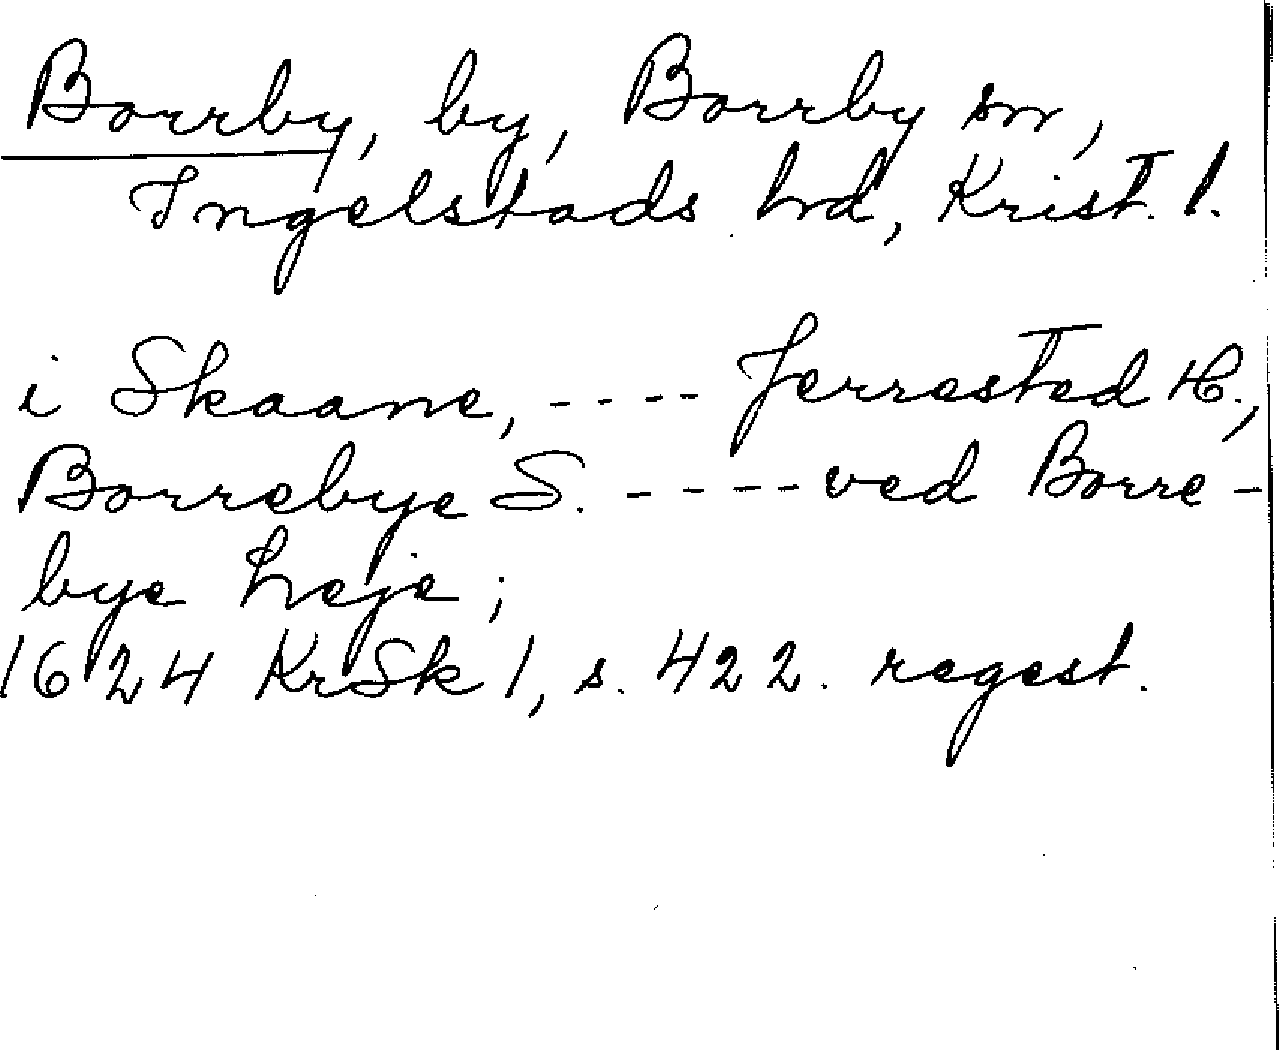 Borrby, by, Borrby sn,
Ingelstads hd, Krist. l.
i Skaane, ---- Jerrested H.,
Borrebye S. ---- ved Borre-
bye heje;
1624 KrSk 1, s. 422. regest.